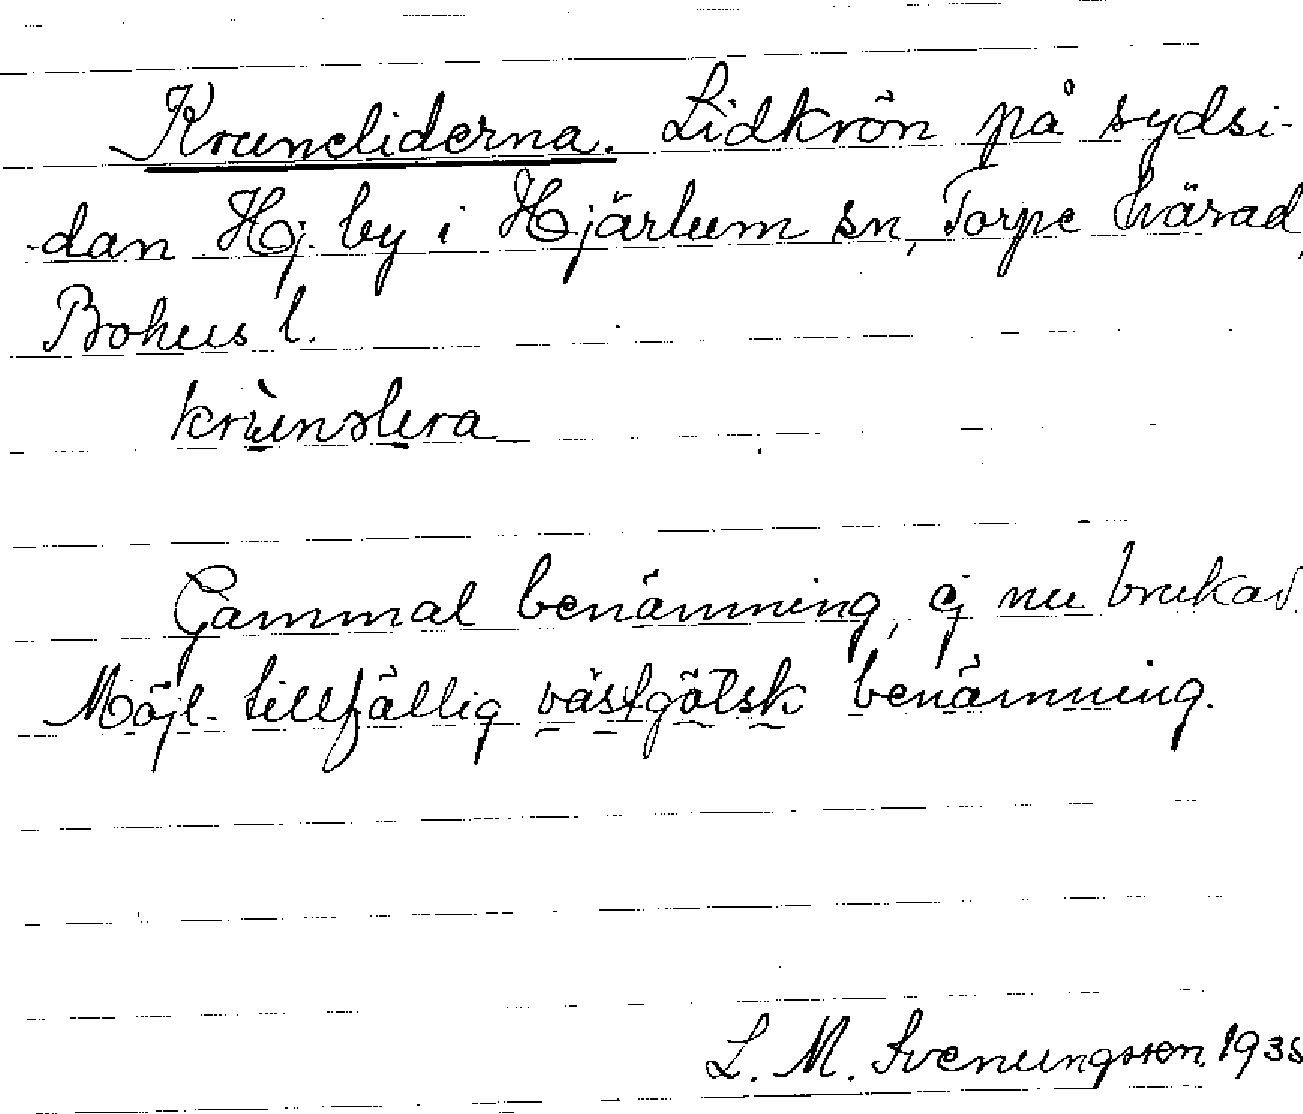 Kruneliderna. Lidkrön på sydsi-
dan Hj. by i Hjärtum sn, Torpe härad,
Bohus l.
Gammal benämning, ej nu brukad.
Möjl. tillfällig västgötsk benämning.
L. M. Svenungsson 1935